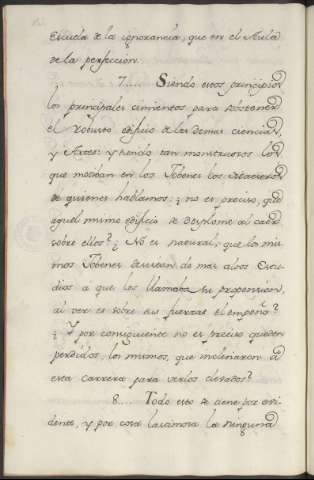 Escuela de la ignorancia, que en el Aula
de la perfeccion.
7.... Siendo estos principios
los principales cimientos para sostener
el robusto edificio de las demas ciencias,
y Artes: y siendo tan monstruosos los
que motiban en los Jobenes los
de quienes hablamos; ¿no es preciso, que
aquel mismo edificio se desplome al caer
sobre ellos? ¿No es natural, que los mis-
mos Jobenes desistan de mas altos Estu-
dios a que los llamaba su propension,
al ver es sobre sus fuerzas el empeño?
¿Y por consiguiente no es preciso queden
perdidos los mismos, que inclinaron a
esta carrera para verlos elevados?
8.... Todo esto se tiene por evi-
dente, y por cosa lastimosa la ninguna